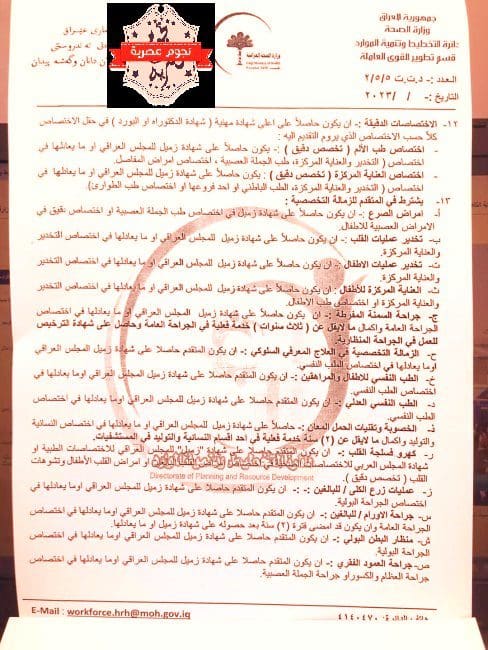 جمهورية العراق
وزارة الصحة
دائرة التخطيط وتنمية الموارد
قسم تطوير القوى العاملة
العدد :- د.ت.ت ٢/٥/٥
التاريخ :- / / ٢٠٢٣
نجوم عصرية
وزارة الصحة العراقية
١٢- الاختصاصات الدقيقة :- ان يكون حاصلاً على اعلى شهادة مهنية ( شهادة الدكتوراه او البورد ) في حقل الاختصاص
كلاً حسب الاختصاص الذي يروم التقديم اليه :
- اختصاص طب الألم ( تخصص دقيق ) :- ان يكون حاصلاً على شهادة زميل للمجلس العراقي او ما يعادلها في
اختصاص ( التخدير والعناية المركزة، طب الجملة العصبية ، اختصاص امراض المفاصل.
- اختصاص العناية المركزة ( تخصص دقيق ) : ان يكون حاصلاً على شهادة زميل للمجلس العراقي او ما يعادلها في
اختصاص ( التخدير والعناية المركزة، طب الباطني او احد فروعها او اختصاص طب الطوارئ).
١٣- يشترط في المتقدم للزمالة التخصصية :
أ- امراض الصرع :- ان يكون حاصلاً على شهادة زميل في اختصاص طب الجملة العصبية او اختصاص دقيق في
الامراض العصبية للاطفال.
ب- تخدير عمليات القلب :- ان يكون حاصلاً على شهادة زميل للمجلس العراقي او ما يعادلها في اختصاص التخدير
والعناية المركزة.
ت- تخدير عمليات الاطفال :- ان يكون حاصلاً على شهادة زميل للمجلس العراقي او ما يعادلها في اختصاص التخدير
والعناية المركزة.
ث- العناية المركزة للأطفال :- ان يكون حاصلاً على شهادة زميل للمجلس العراقي او ما يعادلها في اختصاص التخدير
والعناية المركزة او اختصاص طب الاطفال.
ج- جراحة السمنة المفرطة :- ان يكون حاصلاً على شهادة زميل المجلس العراقي او ما يعادلها في اختصاص
الجراحة العامة واكمال ما لايقل عن ( ثلاث سنوات ) خدمة فعلية في الجراحة العامة وحاصل على شهادة الترخيص
للعمل في الجراحة المنظارية.
ح- الزمالة التخصصية في العلاج المعرفي السلوكي :- ان يكون المتقدم حاصلاً على شهادة زميل المجلس العراقي
اوما يعادلها في اختصاص الطب النفسي.
خ- الطب النفسي للاطفال والمراهقين :- ان يكون المتقدم حاصلاً على شهادة زميل للمجلس العراقي اوما يعادلها
في اختصاص الطب النفسي.
د- الطب النفسي العدلي :- ان يكون المتقدم حاصلاً على شهادة زميل للمجلس العراقي اوما يعادلها في اختصاص
الطب النفسي.
ذ- الخصوبة وتقنيات الحمل المعان :- ان يكون حاصلاً على شهادة زميل للمجلس العراقي اوما يعادلها في اختصاص النسائية
والتوليد واكمال ما لايقل عن (٢) سنة خدمة فعلية في احد اقسام النسائية والتوليد في المستشفيات.
ر- كهرو فسلجة القلب :- ان يكون المتقدم حاصلاً على شهادة "زميل" للمجلس العراقي للاختصاصات الطبية او
شهادة المجلس العربي للاختصاصات او امراض القلب الأطفال وتشوهات
القلب ( تخصص دقيق ).
Directorate of Planning and Resource Development
ز- عمليات زرع الكلى / للبالغين :- ان يكون المتقدم حاصلاً على شهادة زميل للمجلس العراقي اوما يعادلها في
اختصاص الجراحة البولية.
س- جراحة الاورام / للبالغين :- ان يكون المتقدم حاصلاً على شهادة زميل للمجلس العراقي اوما يعادلها في اختصاص
الجراحة العامة وان يكون قد امضى فترة (٢) سنة بعد حصوله على شهادة زميل او ما يعادلها.
ش- منظار البطن البولي :- ان يكون المتقدم حاصلاً على شهادة زميل للمجلس العراقي اوما يعادلها في اختصاص
الجراحة البولية.
ص- جراحة العمود الفقري :- ان يكون المتقدم حاصلاً على شهادة زميل للمجلس العراقي اوما يعادلها في اختصاص
جراحة العظام والكسور او جراحة الجملة العصبية.
هاتف الدائرة: ٤١٤٠٤٧٠
E-Mail : workforce.hrh@moh.gov.iq